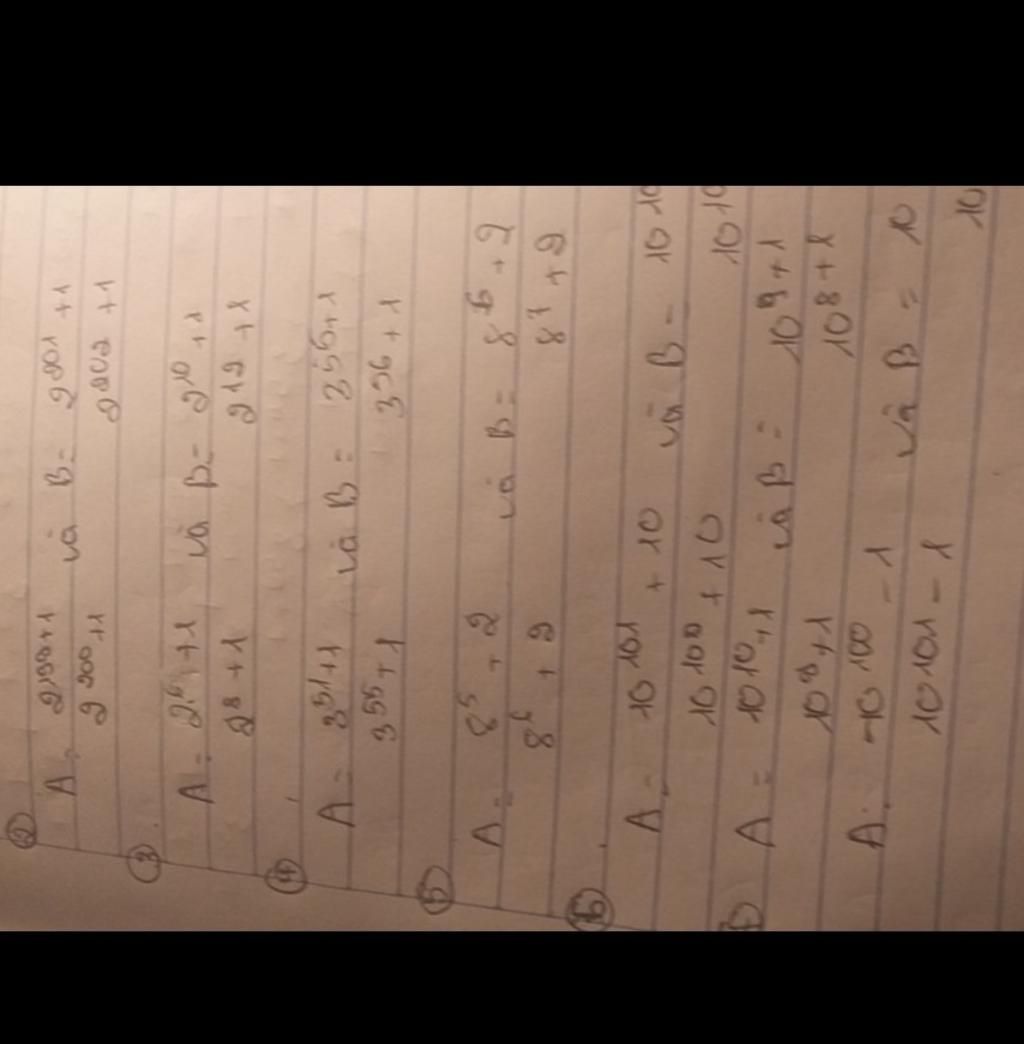 ②
A = 2^199+1 và B = 2^201 +1
2^200+1 2^202 +1
③
A = 2^6+1 và B = 2^10 +1
2^8 +1 2^12 +1
④
A = 3^51+1 và B = 3^56+1
3^55+1 3^56 +1
⑤
A = 8^5 + 2 và B = 8^6 +2
8^6 + 2 8^7 +2
⑥
A = 10^101 + 10 và B = 10 10
10^100 + 10 10 10
A = 10^10+1 và B = 10^9+1
10^9+1 10^8+1
A = 10^100 - 1 và B = 10
10^101 - 1 10